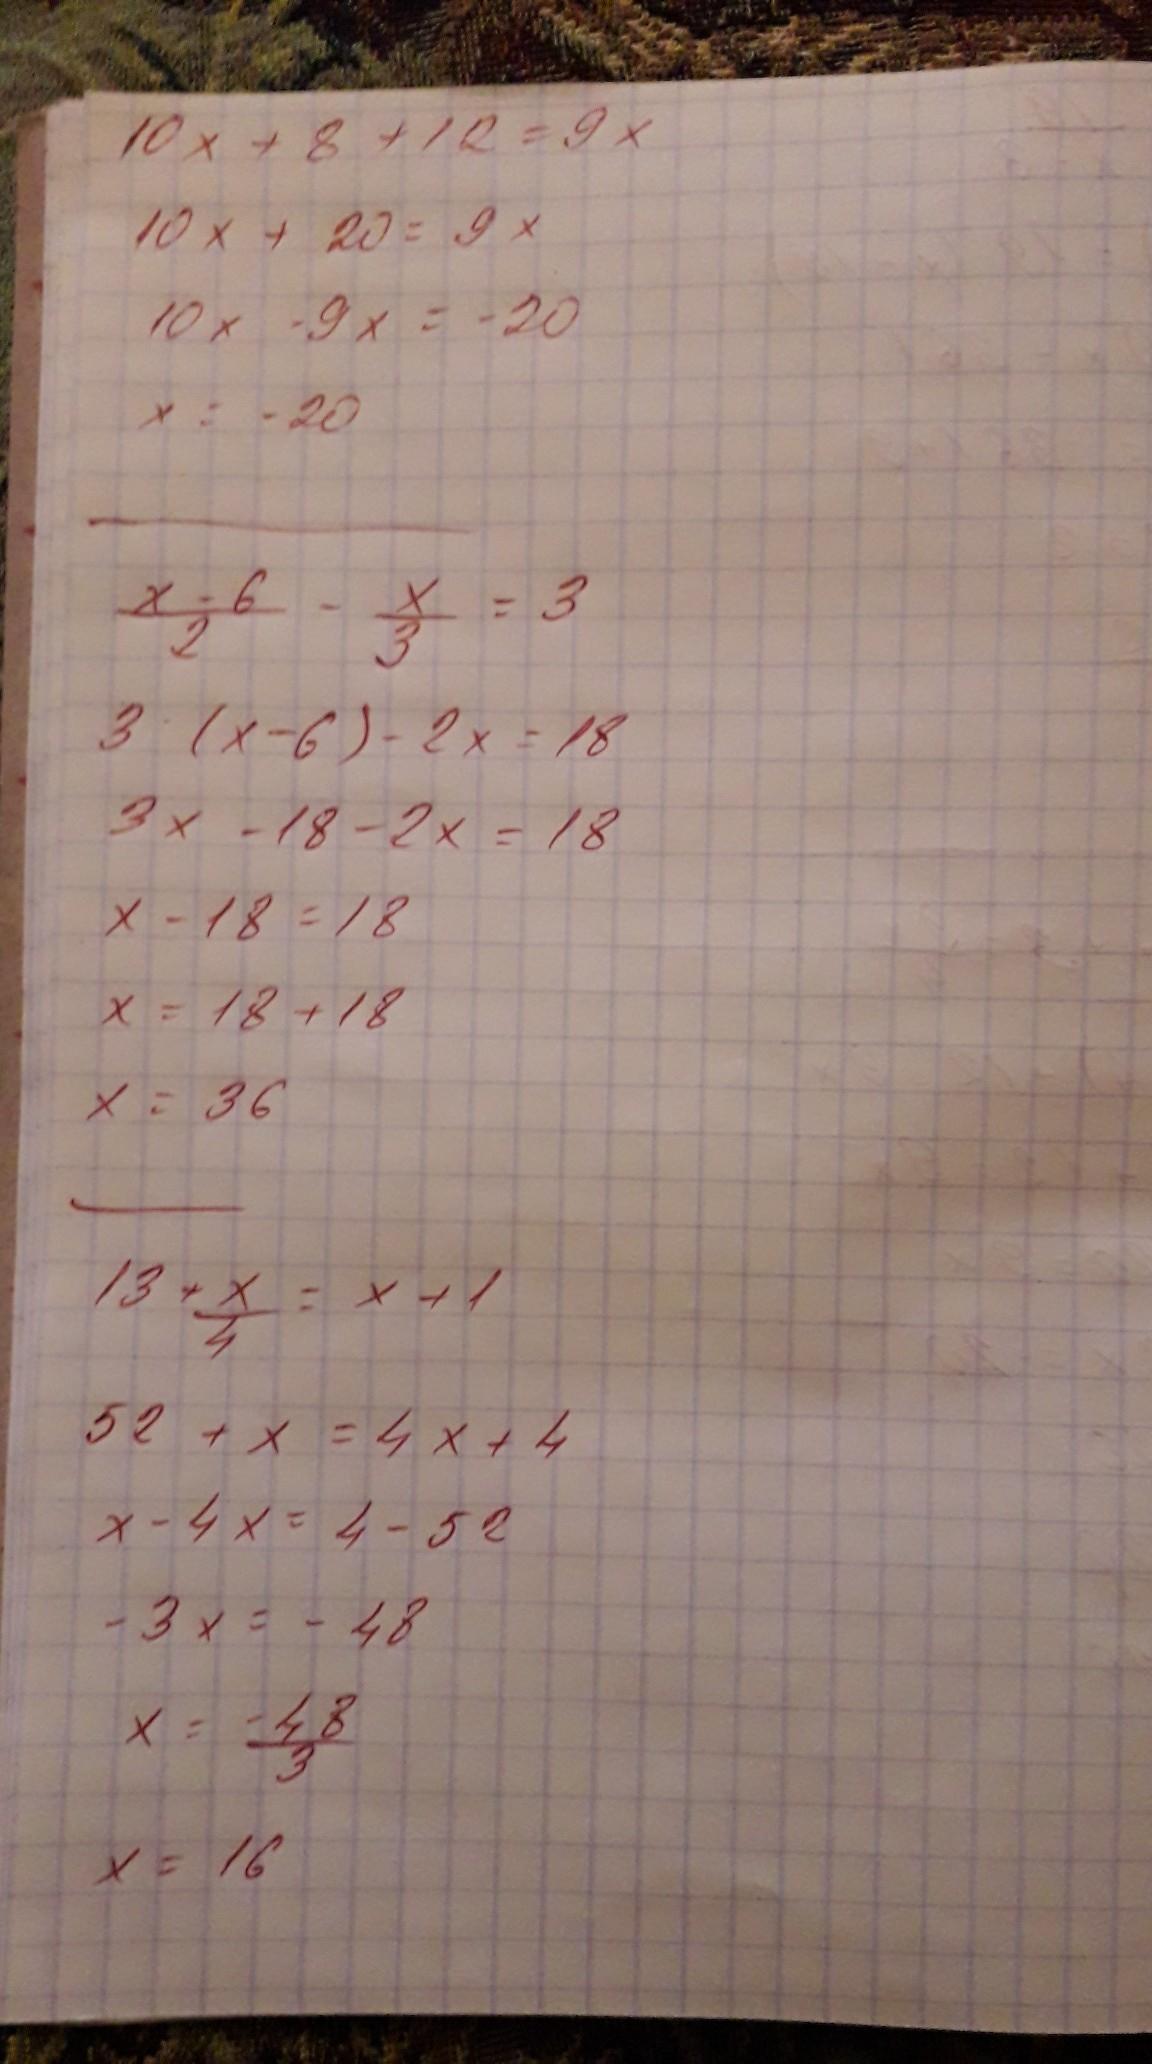 10x + 8 + 12 = 9x
10x + 20 = 9x
10x - 9x = -20
x = -20
x - 6 / 2 - x / 3 = 3
3 (x - 6) - 2x = 18
3x - 18 - 2x = 18
x - 18 = 18
x = 18 + 18
x = 36
13 + x / 4 = x + 1
52 + x = 4x + 4
x - 4x = 4 - 52
-3x = -48
x = -48 / 3
x = 16